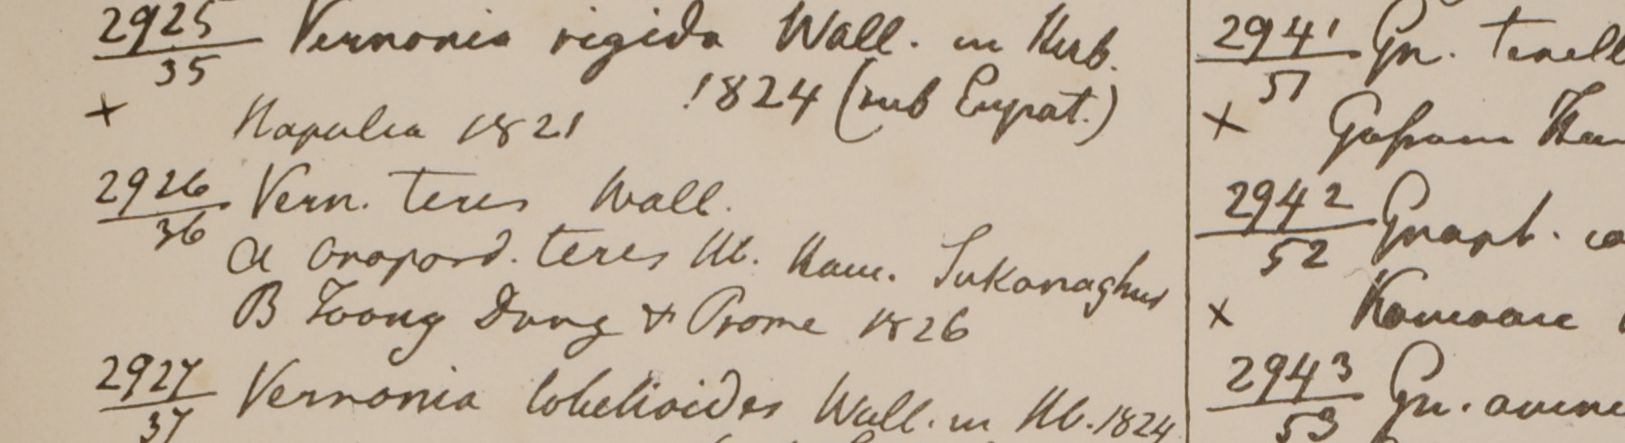 2925/35 Vernonia rigida Wall. in Herb.
1824 (sub Eupat.)
× Napalia 1821
2926/36 Vern. teres Wall.
a Onopord. teres Hb. Ham. Sukanaghur
B Toong Dong & Prome 1826
2927/37 Vernonia lobelioides Wall. in Hb. 1824
2941/51 Gn. tenell
×
2942/52 Gnaph.
× Kamaon
2943/53 Gn.